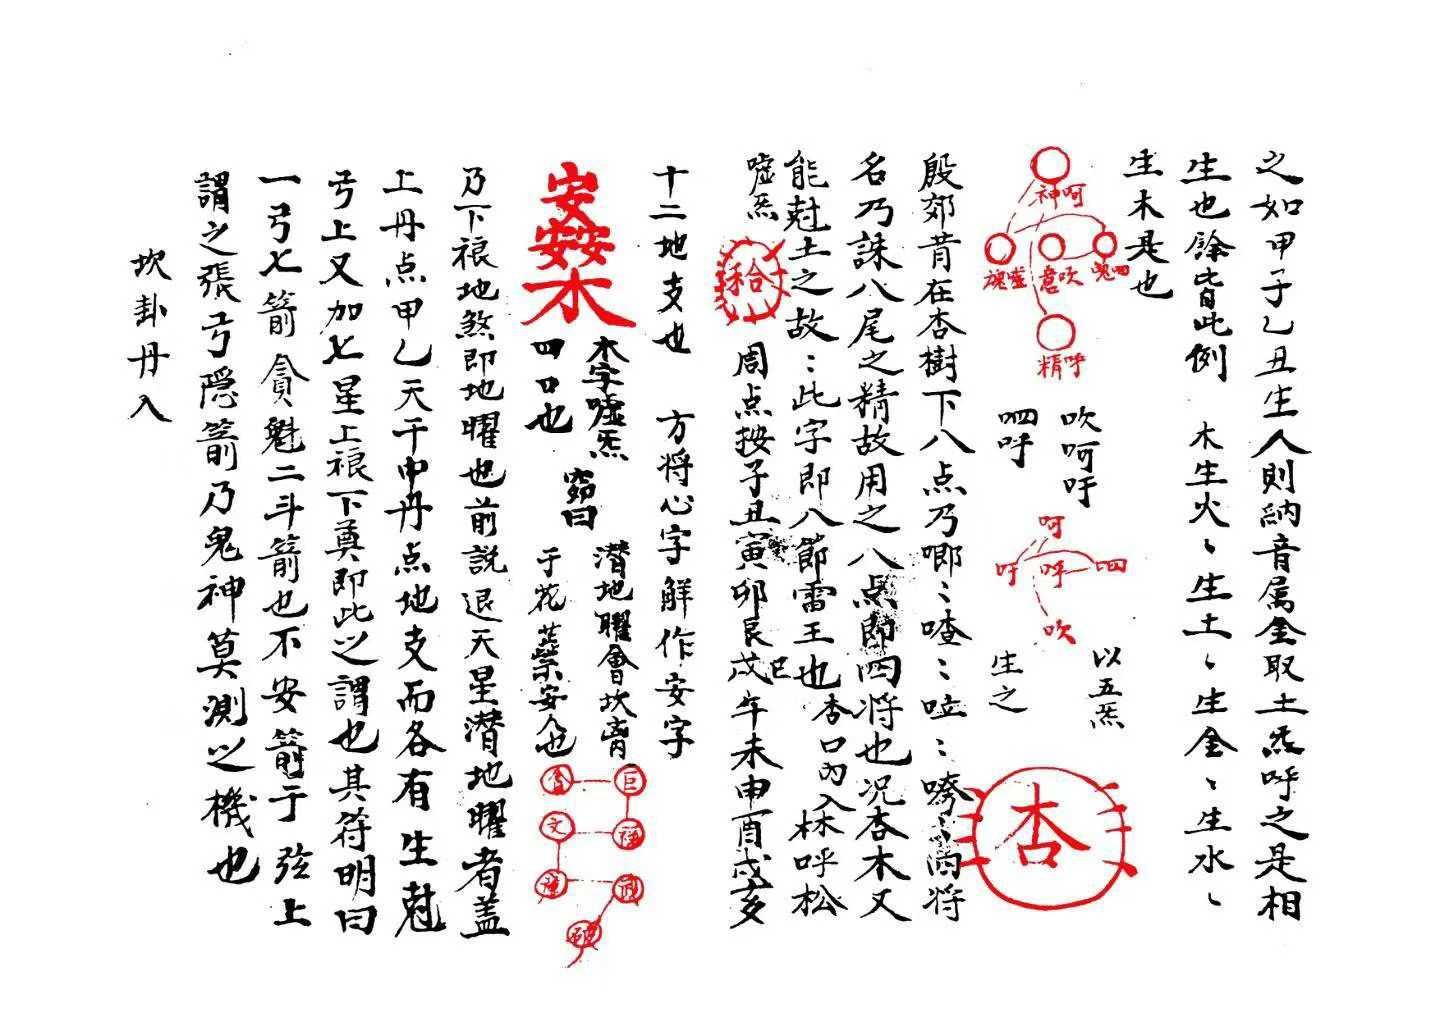 之如甲子乙丑生人則納音属金取土炁呼之是相
生也餘皆此例 木生火ミ生土ミ生金ミ生水ミ
生木是也
呵神
嘘魂
吹意
呬魄
呼精
吹呵吁
呬呼
呵
吁 呼 呬
吹
以五炁
生之
杏
殷郊昔在杏樹下八点乃唧ミ喳ミ啦ミ嘮ミ
将
名乃誅八尾之精故用之八点即四将也况杏木又
能尅土之故ミ此字即八節雷王也
杏口内入
林呼松
嘘炁
周点按子丑寅卯辰巳午未申酉戌亥
十二地支也 方将心字解作安字
安安安木
木字嘘炁
四口也
窈曰
潜地曜會坎
于花蘂安人也
貪 巨
文 禄
廉 武
破
乃下裉地煞即地曜也前説退天星潜地曜者蓋
上丹点甲乙天干中丹点地支而各有生尅
弓上又加七星上裉下奠即此之謂也其符明曰
一弓七箭貪魁二斗箭也不安箭于弦上
謂之張弓隠箭乃鬼神莫測之機也
坎卦丹入